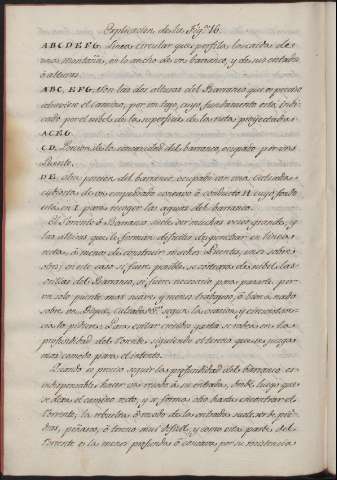 Explicacion de la Fig.ª 16.
A B C D E F G. Linea circular que perfila la caida de
una montaña, en lo ancho de un barranco, y de sus costados
ò alturas.
A B C, E F G, Son las dos alturas del Barranco que es preciso
el camino, por un lado, cuyo fundamento està indi-
cado por el nibel de la superficie de la ruta proyectada
A C E G.
C D. Porcion de la concavidad del barranco, ocupada por un
Puente.
D E. otra porcion del barranco, ocupada con una calzada
cubierta de un empedrado concavo ò conducto H. cuyo fondo
està en I. para recoger las aguas del barranco.
El Torrente ò Barranco suele ser muchas veces grande, y
las alturas que le forman dificiles de penetrar en linea
recta, à menos de construir muchos Puentes, unos sobre
otros; en este caso si fuere posible, se costearà de nibel las
orillas del Barranco, si fuere necesario para pasarle por
un solo puente mas suave, y menos trabajoso, ò bien à nado
sobre un Dique, Calzada &c. segun la ocasion, y circunstan-
cias lo pidieren; Para evitar crecidos gastos se rodea en la
profundidad del Torrente siguiendo el terreno que se juzgue
mas comodo para el intento.
Quando es preciso seguir la profundidad del barranco, es
indispensable hacer un rodeo à su entrada, desde luego que
se dexa el camino recto, y se forma otro hasta encontrar el
Torrente, la rebuelta ò rodeo de la entrada suele ser de pie-
dras, peñasco, ò terreno mui dificil, y como esta parte del
Torrente es la menos profunda ò concava por su resistencia